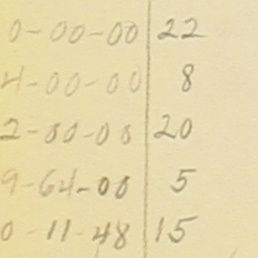 0-00-00 22
4-00-00 8
2-00-00 20
9-64-00 5
0-11-48 15